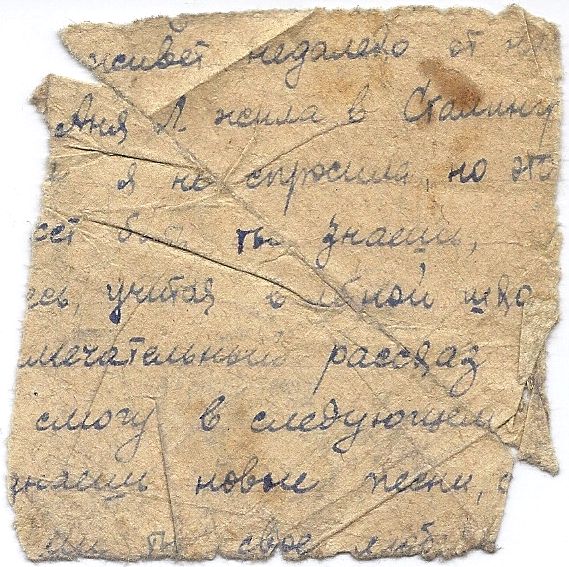 живет недалеко от
Аня Л жила в Сталингр
я не спросила, но эт
ты знаешь,
учитоя в одной шко
мечательный рассказ
смогу в следующем
знаешь новые песни,
ты свое